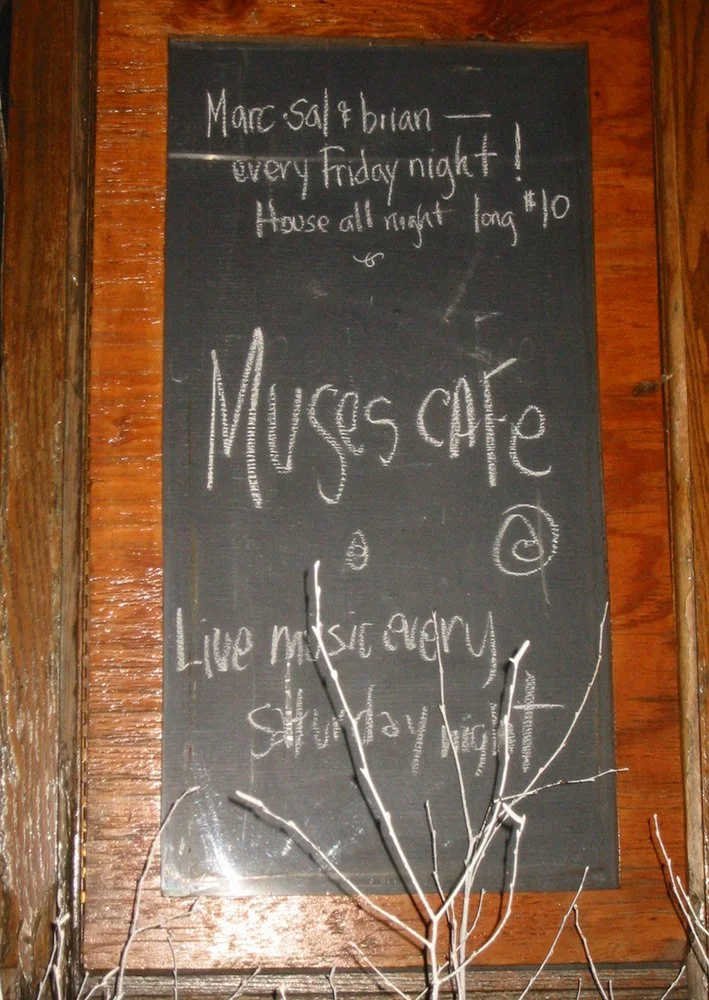 Marc Sal & brian —
every Friday night!
House all night long $10
Muses cafe
@
Live music every
Saturday night